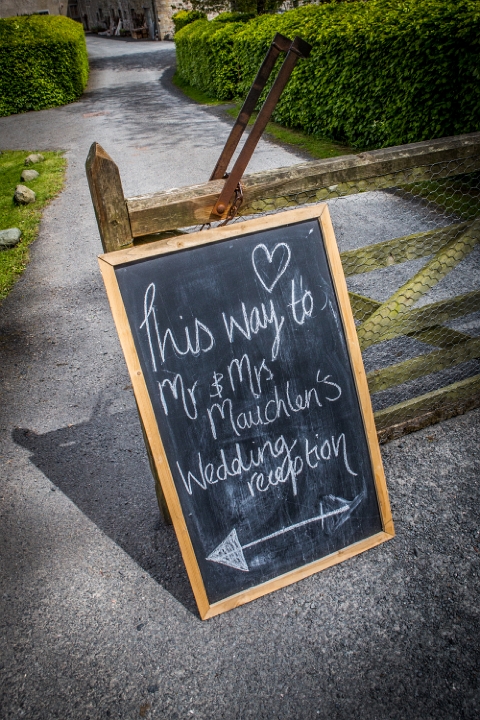 This way to
Mr & Mrs
Mauchlen's
Wedding
reception